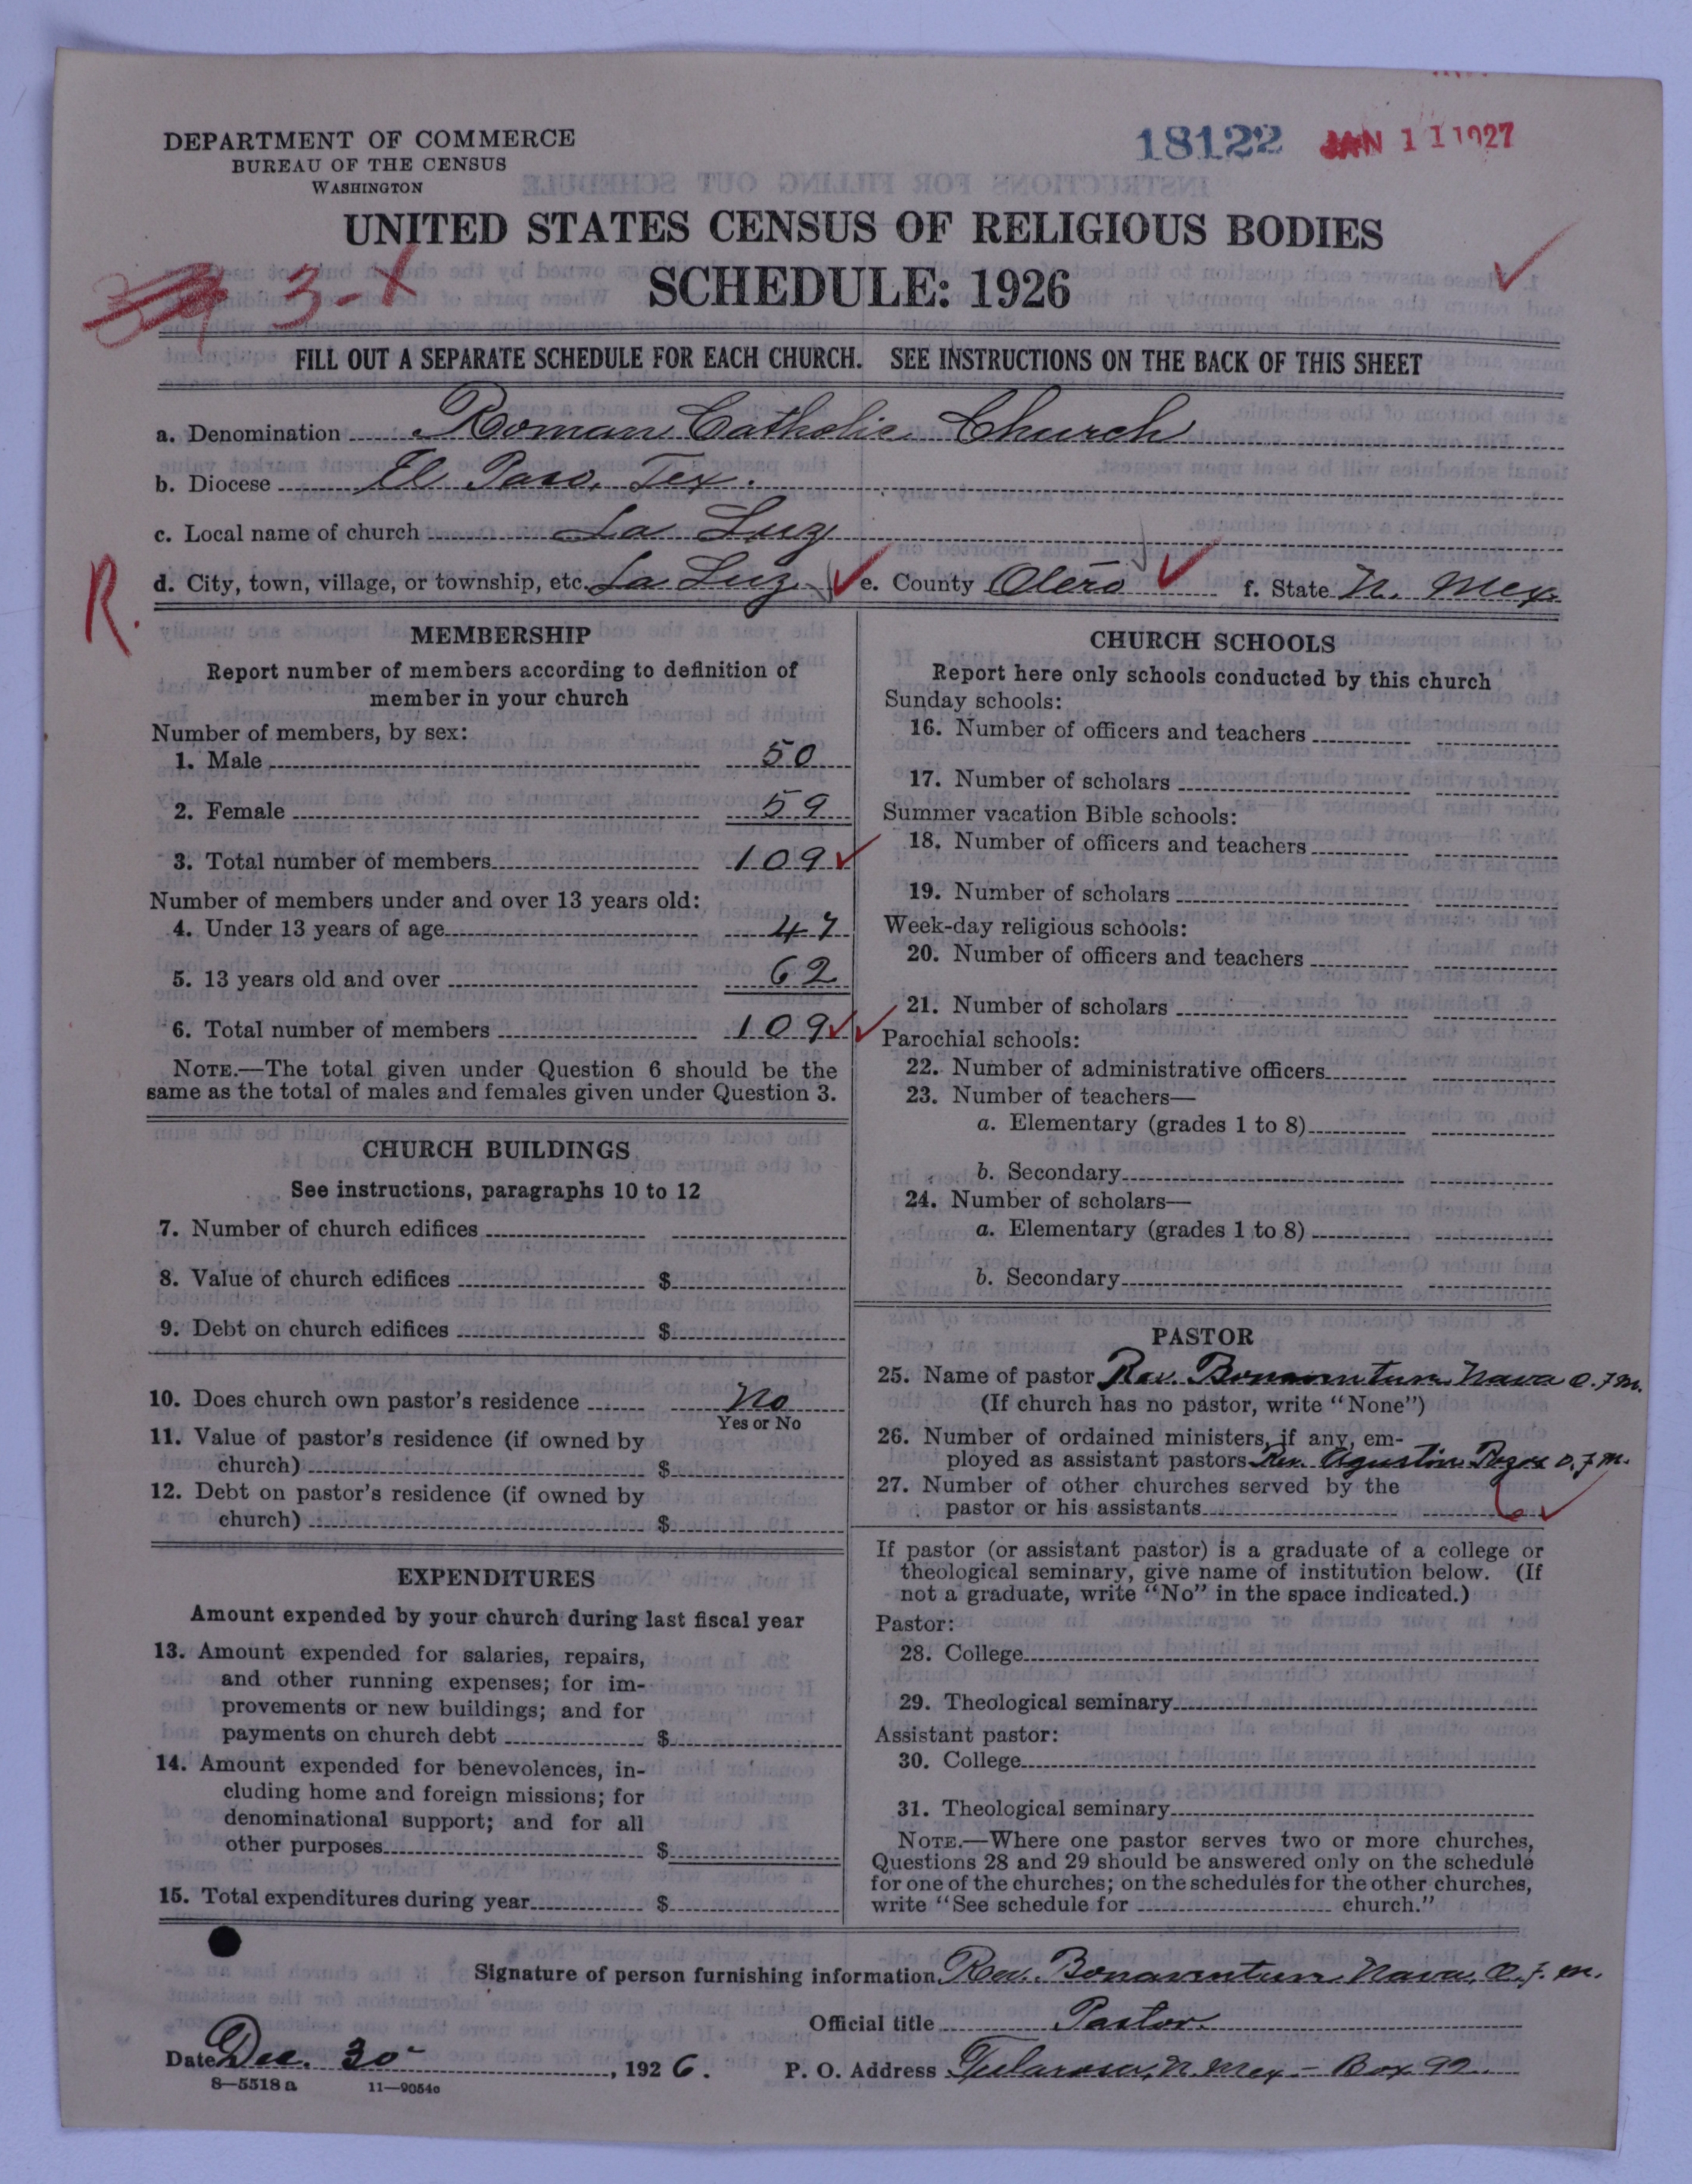 18122 JAN 11 1927
DEPARTMENT OF COMMERCE
BUREAU OF THE CENSUS
WASHINGTON
UNITED STATES CENSUS OF RELIGIOUS BODIES
3-X
SCHEDULE: 1926
FILL OUT A SEPARATE SCHEDULE FOR EACH CHURCH. SEE INSTRUCTIONS ON THE BACK OF THIS SHEET
a. Denomination Roman Catholic Church
b. Diocese El Paso, Tex.
c. Local name of church La Luz
R.
d. City, town, village, or township, etc. La Luz e. County Otero f. State N. Mex.
MEMBERSHIP
Report number of members according to definition of
member in your church
Number of members, by sex:
1. Male 50
2. Female 59
3. Total number of members 109
Number of members under and over 13 years old:
4. Under 13 years of age 47
5. 13 years old and over 62
6. Total number of members 109
NOTE.—The total given under Question 6 should be the
same as the total of males and females given under Question 3.
CHURCH BUILDINGS
See instructions, paragraphs 10 to 12
7. Number of church edifices
8. Value of church edifices $
9. Debt on church edifices $
10. Does church own pastor's residence No
Yes or No
11. Value of pastor's residence (if owned by
church) $
12. Debt on pastor's residence (if owned by
church) $
EXPENDITURES
Amount expended by your church during last fiscal year
13. Amount expended for salaries, repairs,
and other running expenses; for im-
provements or new buildings; and for
payments on church debt $
14. Amount expended for benevolences, in-
cluding home and foreign missions; for
denominational support; and for all
other purposes $
15. Total expenditures during year $
CHURCH SCHOOLS
Report here only schools conducted by this church
Sunday schools:
16. Number of officers and teachers
17. Number of scholars
Summer vacation Bible schools:
18. Number of officers and teachers
19. Number of scholars
Week-day religious schools:
20. Number of officers and teachers
21. Number of scholars
Parochial schools:
22. Number of administrative officers
23. Number of teachers—
a. Elementary (grades 1 to 8)
b. Secondary
24. Number of scholars—
a. Elementary (grades 1 to 8)
b. Secondary
PASTOR
25. Name of pastor Rev. Bonaventura Nava O.F.M.
(If church has no pastor, write "None")
26. Number of ordained ministers, if any, em-
ployed as assistant pastors Rev. Agustin Pozos O.F.M.
27. Number of other churches served by the
pastor or his assistants 6
If pastor (or assistant pastor) is a graduate of a college or
theological seminary, give name of institution below. (If
not a graduate, write "No" in the space indicated.)
Pastor:
28. College
29. Theological seminary
Assistant pastor:
30. College
31. Theological seminary
NOTE.—Where one pastor serves two or more churches,
Questions 28 and 29 should be answered only on the schedule
for one of the churches; on the schedules for the other churches,
write "See schedule for church."
Signature of person furnishing information Rev. Bonaventura Nava, O.F.M.
Official title Pastor.
Date Dec. 30, 1926. P. O. Address Tularosa, N. Mex - Box 92
8—5518 a 11—9054c